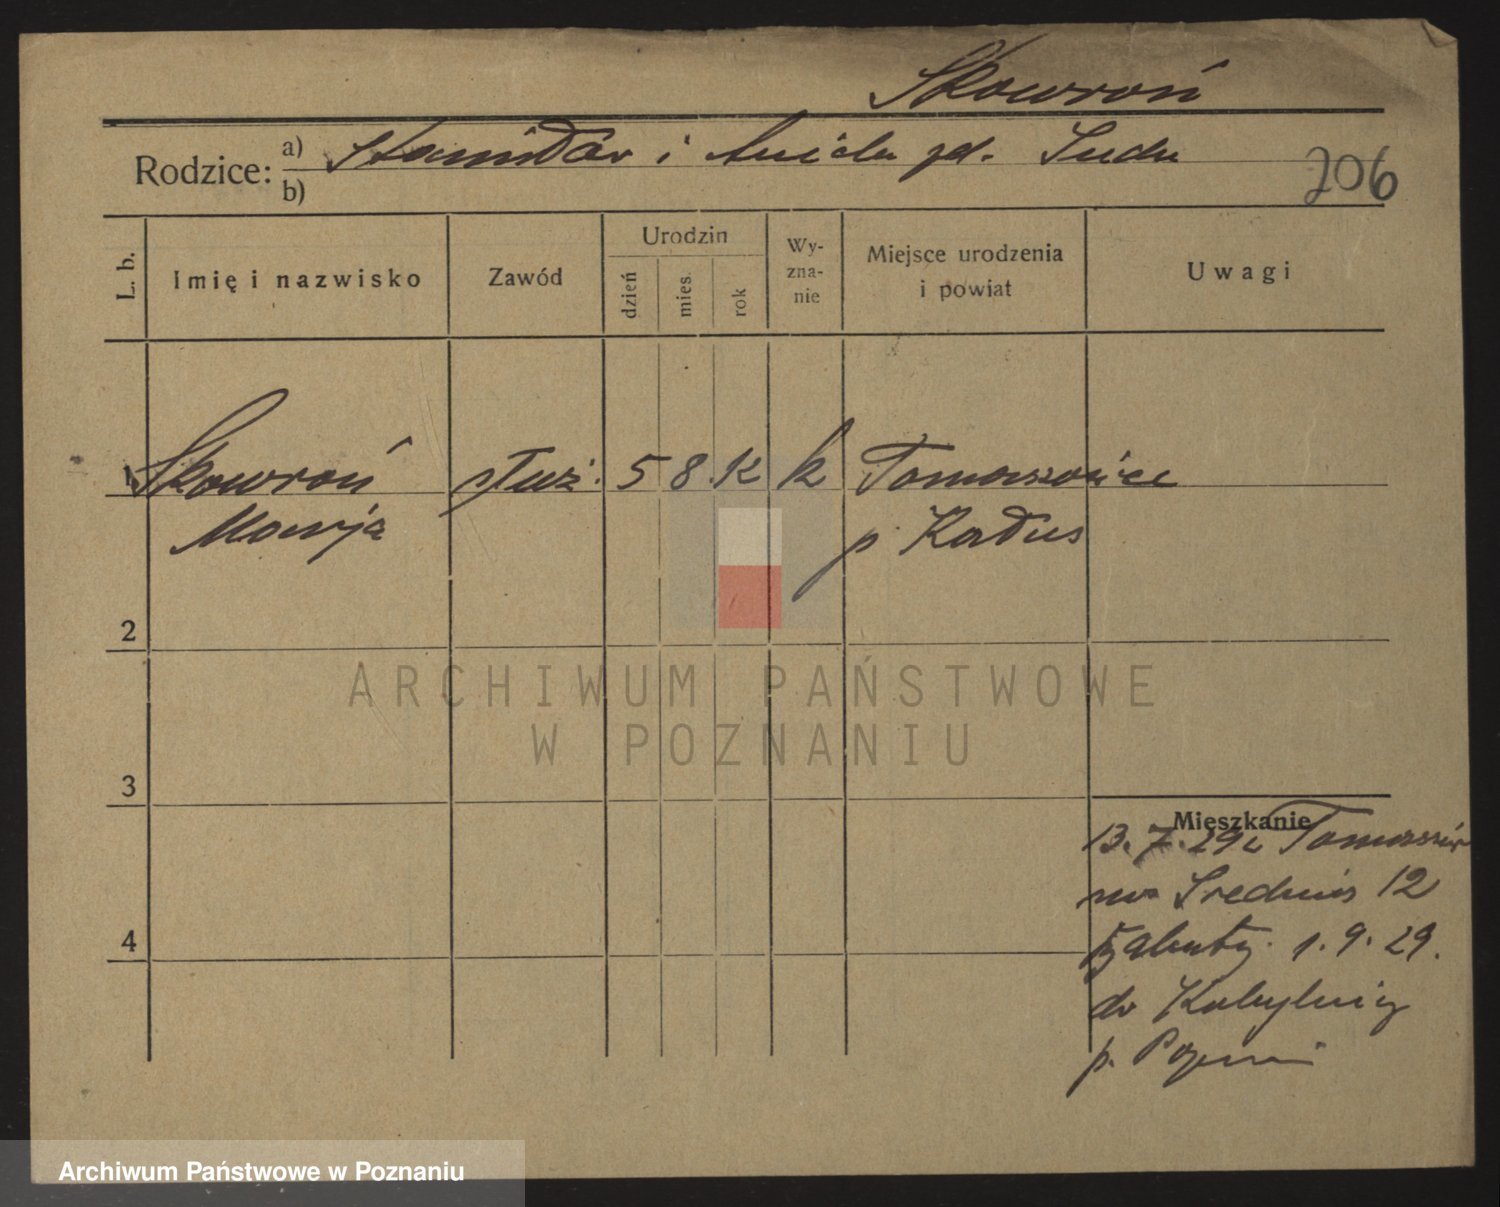 Skowroń
Rodzice: a) Stanisław i Aniela zd. Suda
b)
206
L. b.
Imię i nazwisko
Zawód
Urodzin
dzień
mies.
rok
Wy-
zna-
nie
Miejsce urodzenia
i powiat
Uwagi
1 Skowroń służ. 5 8 12 k Tomaszowice
Marja p Kadus
2
3
4
Mieszkanie
13.7.29 z Tomaszów
na Średnia 12
1.9.29.
do Kobylnicy
p. Pozn
ARCHIWUM PAŃSTWOWE
W POZNANIU
Archiwum Państwowe w Poznaniu